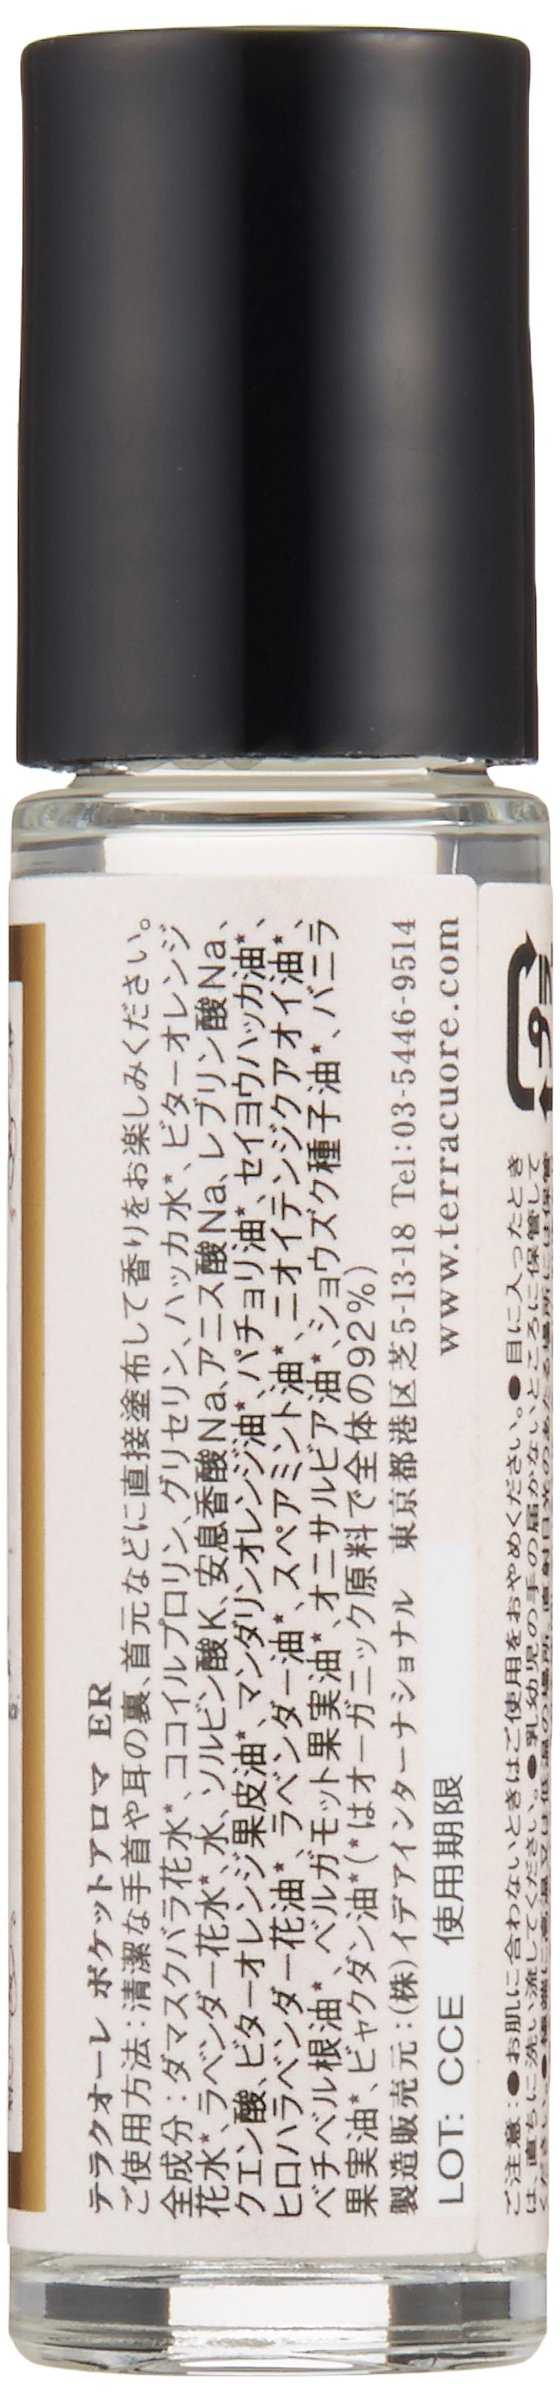 テラクオーレ ポケットアロマ ER
ご使用方法：清潔な手首や耳の裏、首元などに直接塗布して香りをお楽しみください。
全成分：ダマスクバラ花水*、ココイルプロリン、グリセリン、ハッカ水*、ビターオレンジ
花水*、ラベンダー花水*、水、ソルビン酸K、安息香酸Na、アニス酸Na、レブリン酸Na、
クエン酸、ビターオレンジ果皮油*、マンダリンオレンジ油*、パチョリ油*、セイヨウハッカ油*、
ヒロハラベンダー花油*、ラベンダー油*、スペアミント油*、ニオイテンジクアオイ油*、
ベチベル根油*、ベルガモット果実油*、オニサルビア油*、ショウズク種子油*、バニラ
果実油*、ビャクダン油*(*はオーガニック原料で全体の92%)
製造販売元：(株)イデアインターナショナル 東京都港区芝5-13-18 Tel:03-5446-9514
www.terracuore.com
LOT: CCE 使用期限
ご注意：●お肌に合わないときはご使用をおやめください。●目に入ったとき
は直ちに洗い流してください。●乳幼児の手の届かないところに保管して
ください。●極端に高温又は低温の場所、直射日光のあたる場所には保管